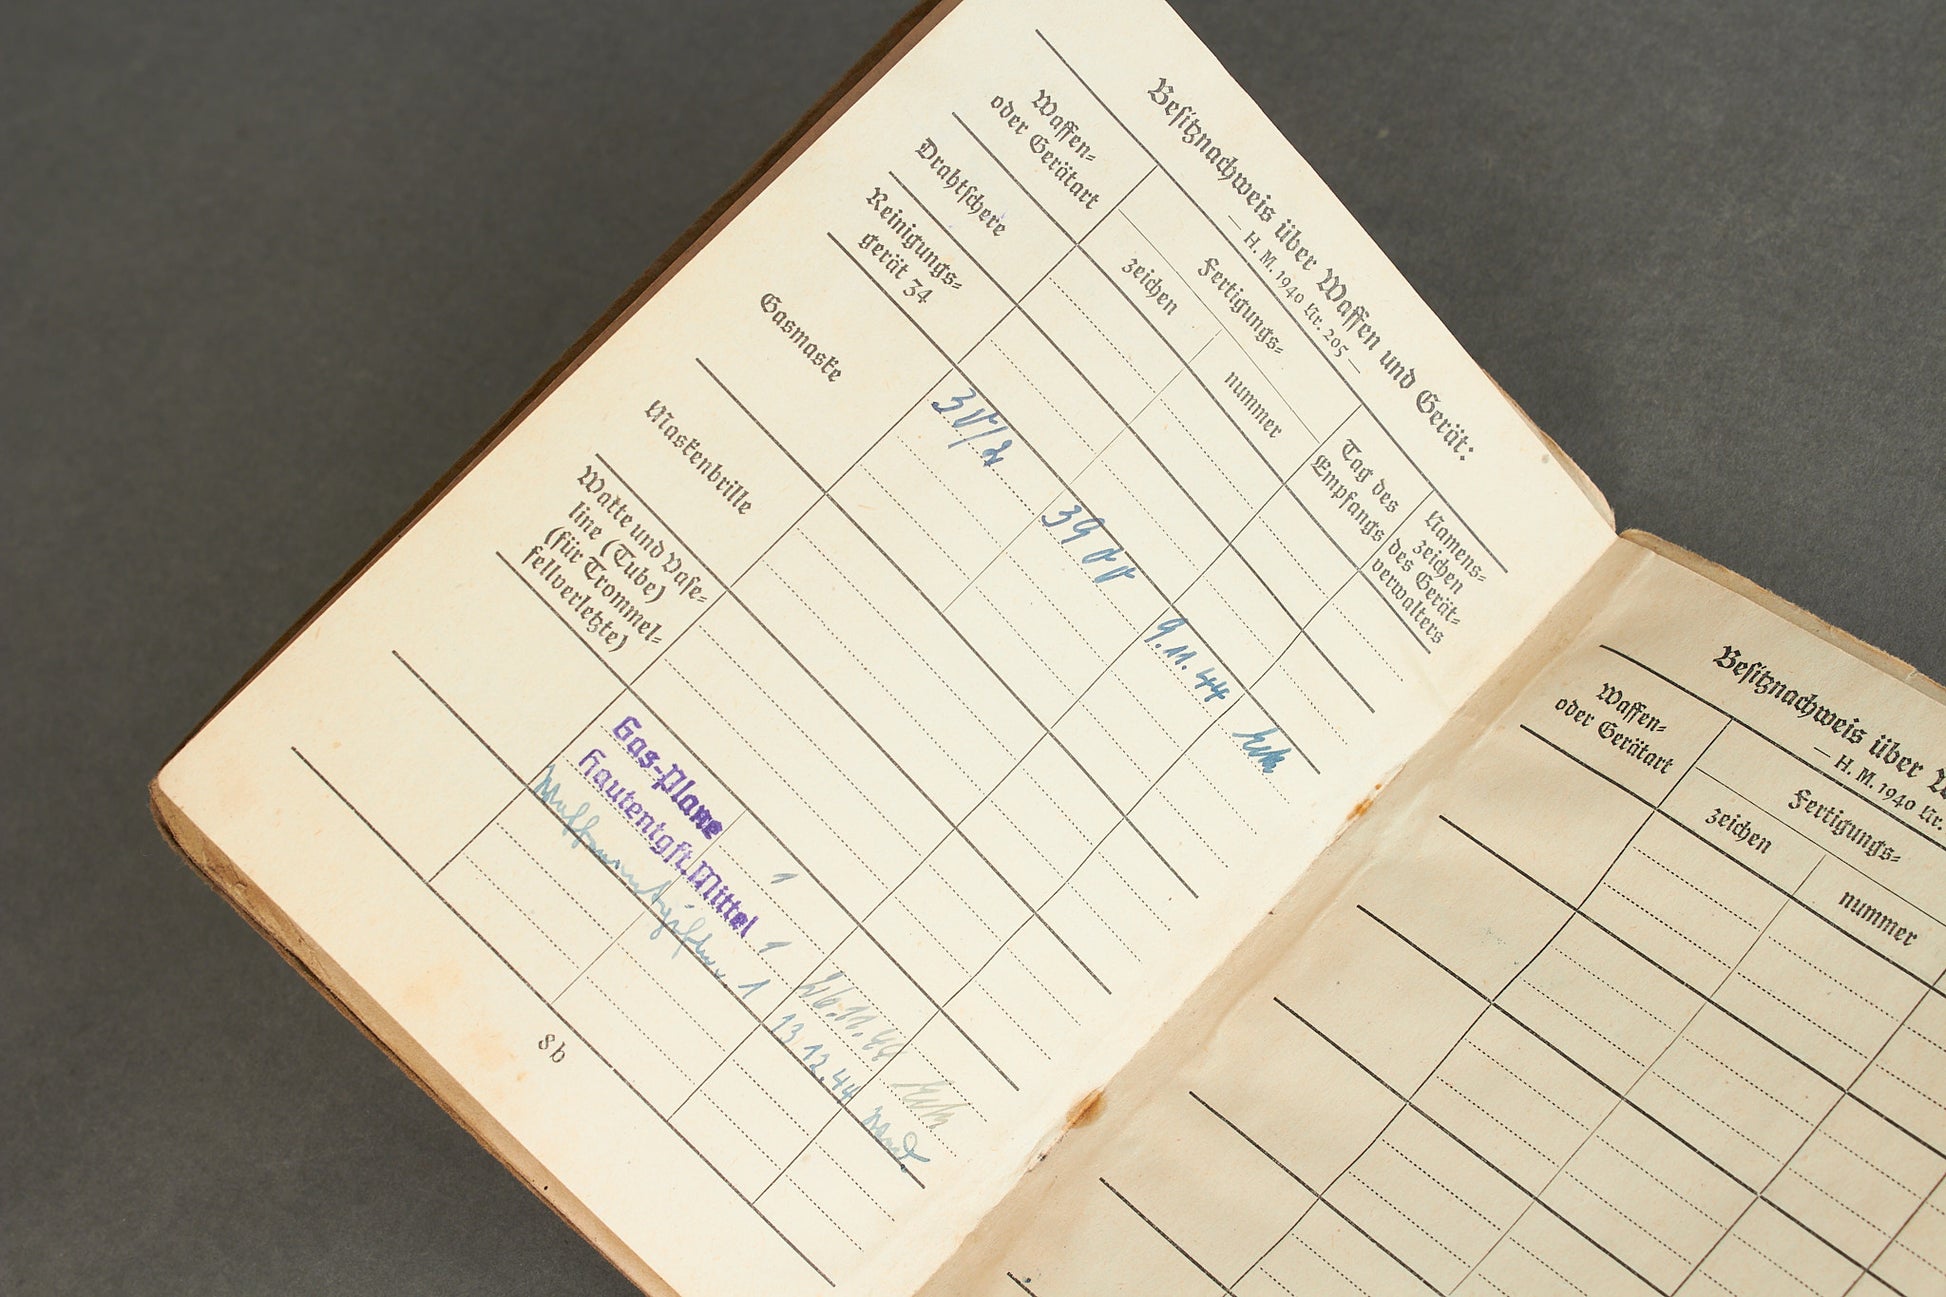 Besitznachweis über Waffen und Gerät:
— H. M. 1940 Nr. 205 —
Waffen-
oder Gerätart
Fertigungs-
zeichen
nummer
Tag des
Empfangs
Namens-
zeichen
des Gerät-
verwalters
Drahtschere
Reinigungs-
gerät 34
Gasmaske
39
9.11.44
Maskenbrille
Watte und Vase-
line (Tube)
(für Trommel-
fellverletzte)
Gas-Plane 1
Hautentgft.Mittel 1
26.11.44
1
13 12.44
8b
Besitznachweis über
— H. M. 1940 Nr.
Waffen-
oder Gerätart
Fertigungs-
zeichen
nummer